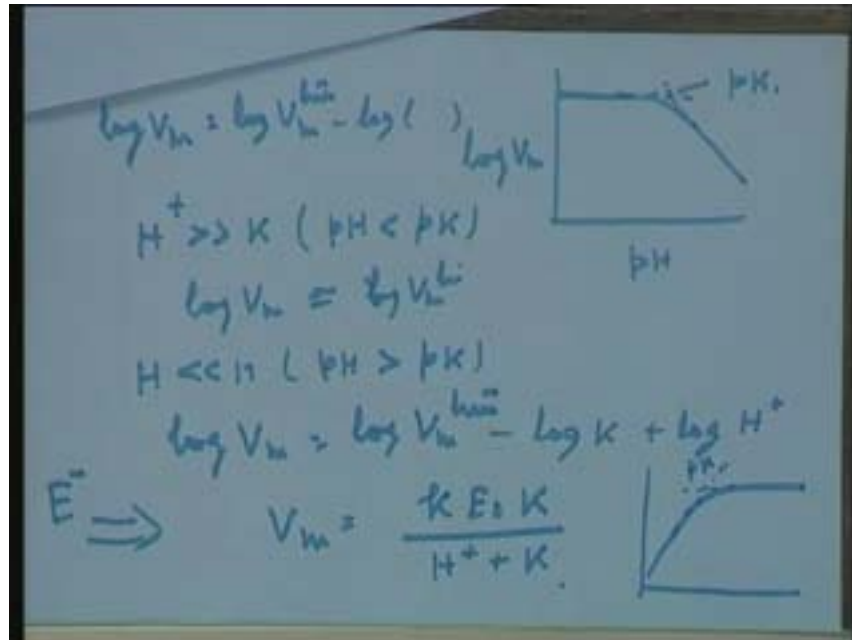 log Vm = log Vm^lim - log ( )
log Vm
pK.
pH
H+ >> K ( pH < pK)
log Vm = log Vm^lim
H << K ( pH > pK)
log Vm = log Vm^lim - log K + log H+
pK.
E- ⇒ Vm = k E0 K / H+ + K.